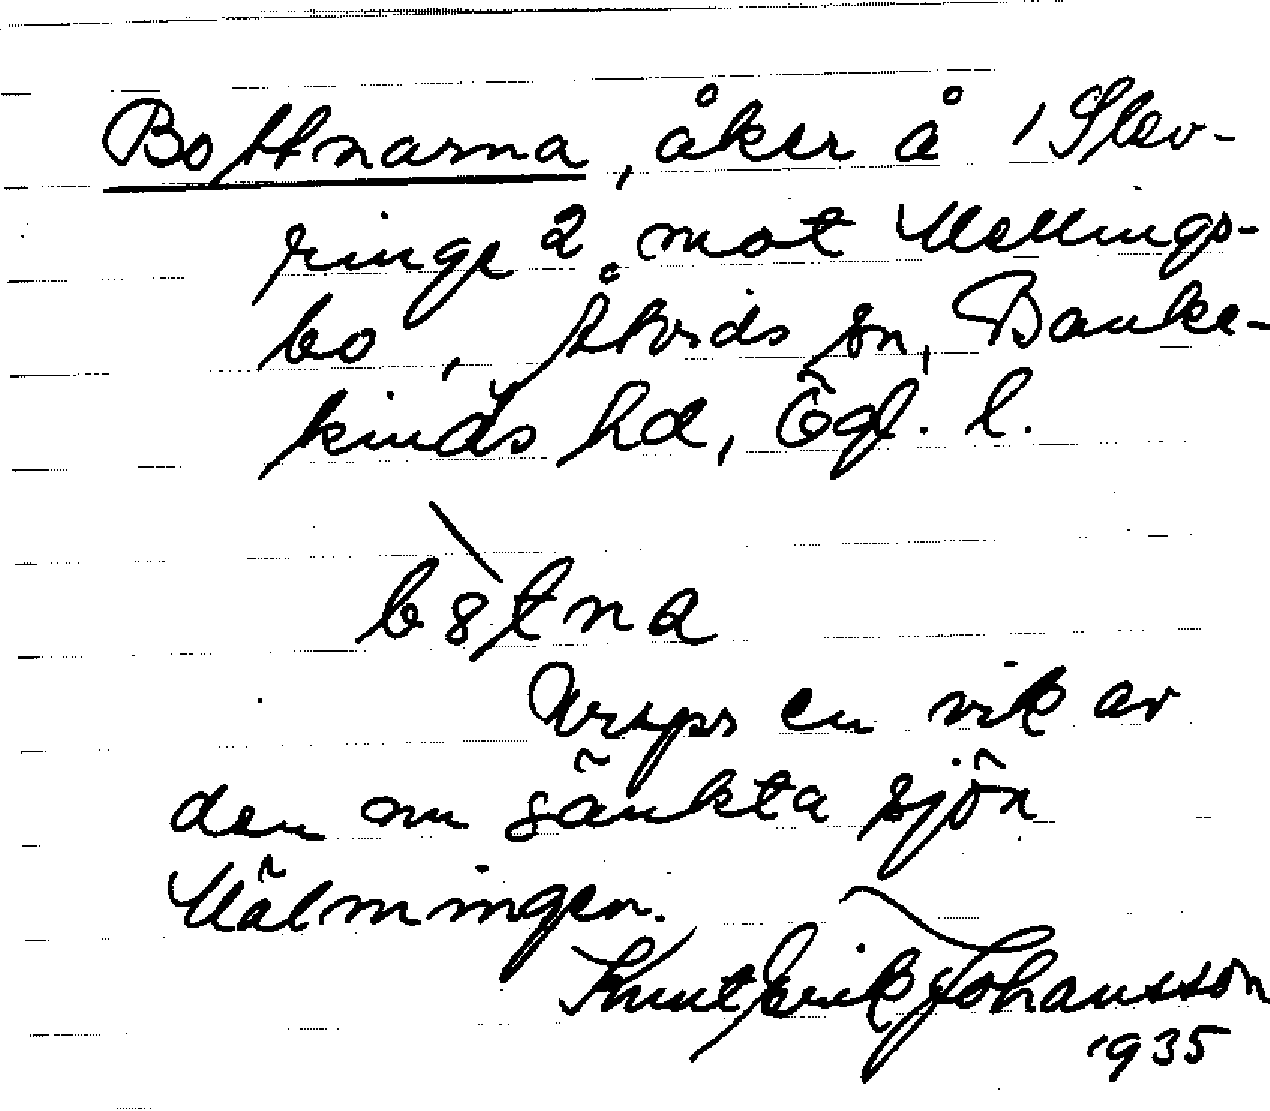 Bottnarna, åker å 1 Slev-
ringe 2 mot Mellings-
bo, Åtvids sn, Banke-
kinds hd, Ögl. l.
bötna
Utgör en vik av
den nu sänkta sjön
Målmingen.
Knut Erik Johansson
1935